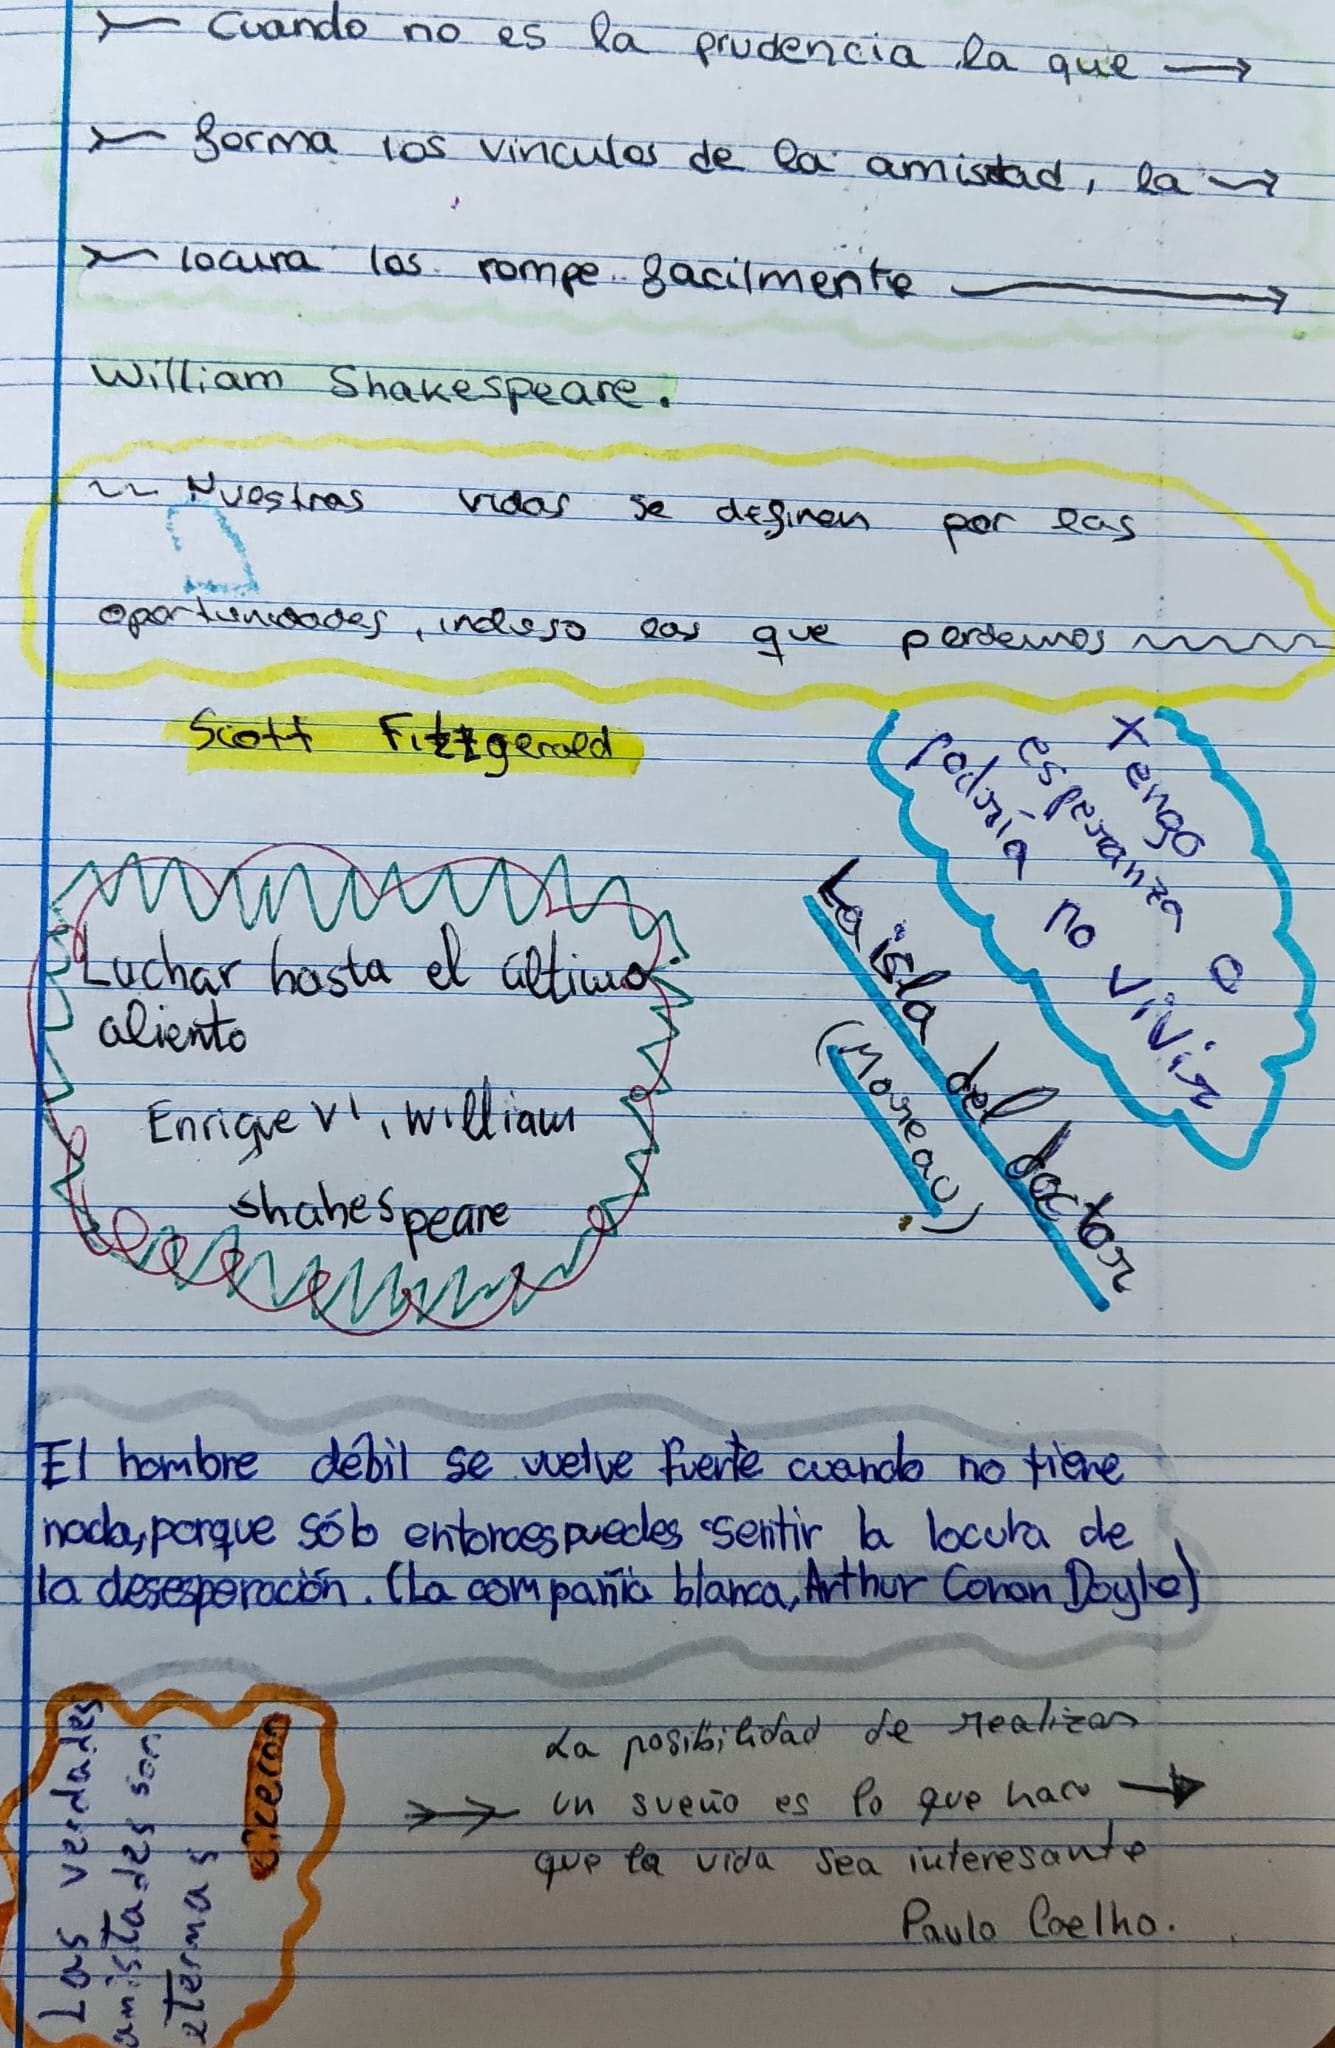 Cuando no es la prudencia la que
forma los vinculos de la amistad, la
locura los rompe facilmente
William Shakespeare.
Nuestras vidas se definen por las
oportunidades, incluso las que perdemos
Scott Fitzgerald
Tengo
esperanza o
podría no vivir
La isla del doctor
(Moureau)
Luchar hasta el último
aliento
Enrique VI, William
Shakespeare
El hombre débil se vuelve fuerte cuando no tiene
nada, porque sólo entonces puedes sentir la locura de
la desesperación. (La compañía blanca, Arthur Conan Doyle)
Las verdades
amistades son
eternas
Ciceron
La posibilidad de realizar
un sueño es lo que hace
que la vida sea interesante
Paulo Coelho.